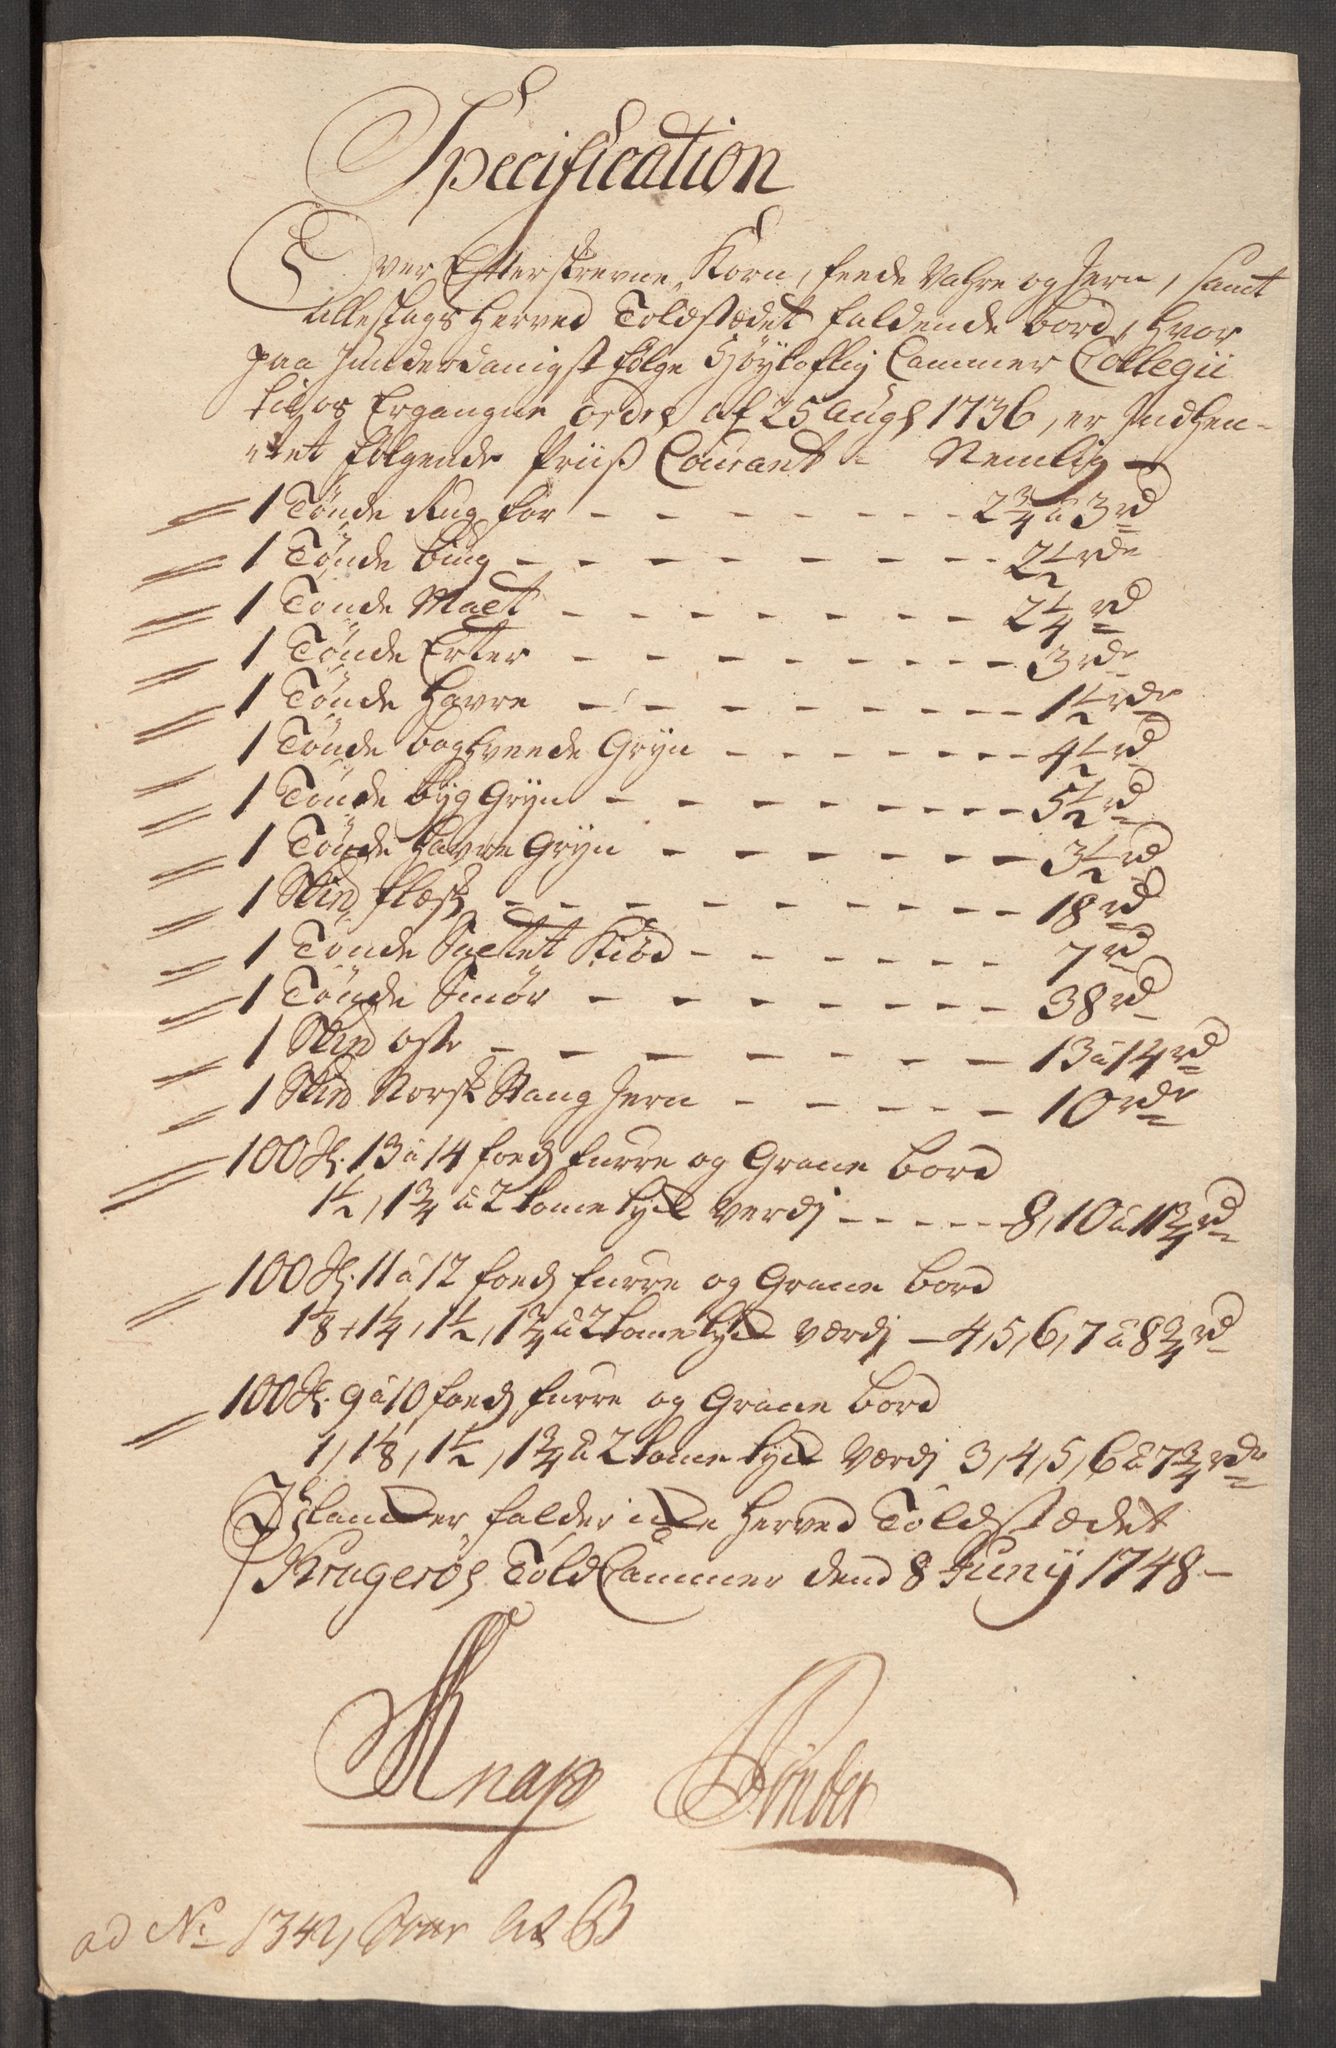 Specification
Over Efterskrevne Korn, feede Vahre og Jern, samt
alleslags Herved Toldstædet faldende bord, Hvor
paa Junderdanigst følge Høyloflig Cammer Collegii
til os Ergangne Ordre af 25 Aug 1736, er Indhen-
tet følgende Priiß Courant Nemlig
1 Tønde Rug for - - - - - - - 2 3/4 a 3 rd
1 Tønde biug - - - - - - - 2 1/2 rdr
1 Tønde Malt - - - - - - - 2 1/4 rd
1 Tønde Erter - - - - - - - 3 rdr
1 Tønde Havre - - - - - - - 1 1/2 rdr
1 Tønde boghveede Gryn - - - - - 4 1/2 rd
1 Tønde byg Gryn - - - - - - - 5 1/2 rd
1 Tønde Havre Gryn - - - - - - 3 1/2 rd
1 Skid flæsk - - - - - - - 18 rd
1 Tønde Saltet Kiød - - - - - - 7 rd
1 Tønde Smør - - - - - - - 38 rd
1 Skid oste - - - - - - - 13 a 14 rd
1 Skid Norsk Stang Jern - - - - - 10 rdr
100 St. 13 a 14 foeds furre og Grane bord
1 1/2, 1 3/4 a 2 tome tyck Verdj - - - - - 8, 10 a 11 3/4 rd
100 St. 11 a 12 foeds furre og Grane bord
1 1/8, 1 1/4, 1 1/2, 1 3/4 a 2 tome tyck værdj - 4, 5, 6, 7 a 8 3/4 rd
100 St. 9 a 10 foeds furre og Grane bord
1, 1 1/8, 1 1/2, 1 3/4 a 2 tome tyck Værdj 3, 4, 5, 6 a 7 3/4 rdr
falder icke Herved Toldstædet
Kragerøes Told Cammer dend 8 Juny 1748
Knap Tønder
ad No 1342, B